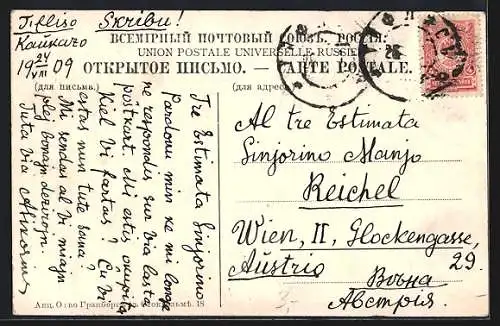 Tifliso Skribu!
Kaŭkazo
19 24/VIII 09
ВСЕМІРНЫЙ ПОЧТОВЫЙ СОЮЗЪ. РОССІЯ.
UNION POSTALE UNIVERSELLE. RUSSIE.
ОТКРЫТОЕ ПИСЬМО. — CARTE POSTALE.
(для письма).
(для адреса).
Tre Estimata Sinjorino
Pardonu min ke mi longe
ne respondis sur via lasta
poŝtkart. Mi estis okupita
Kiel Vi fartas? Ĉu Vi
estas nun tute sana?
Mi sendas al Vi miajn
plej bonajn dezirojn.
Tuta via
Al tre Estimata
Sinjorino Manjo
Reichel
Wien, II, Glockengasse,
29.
Austrio
Вѣна
Австрія.
Акц. О-во Гранбергъ въ Стокгольмѣ. 18